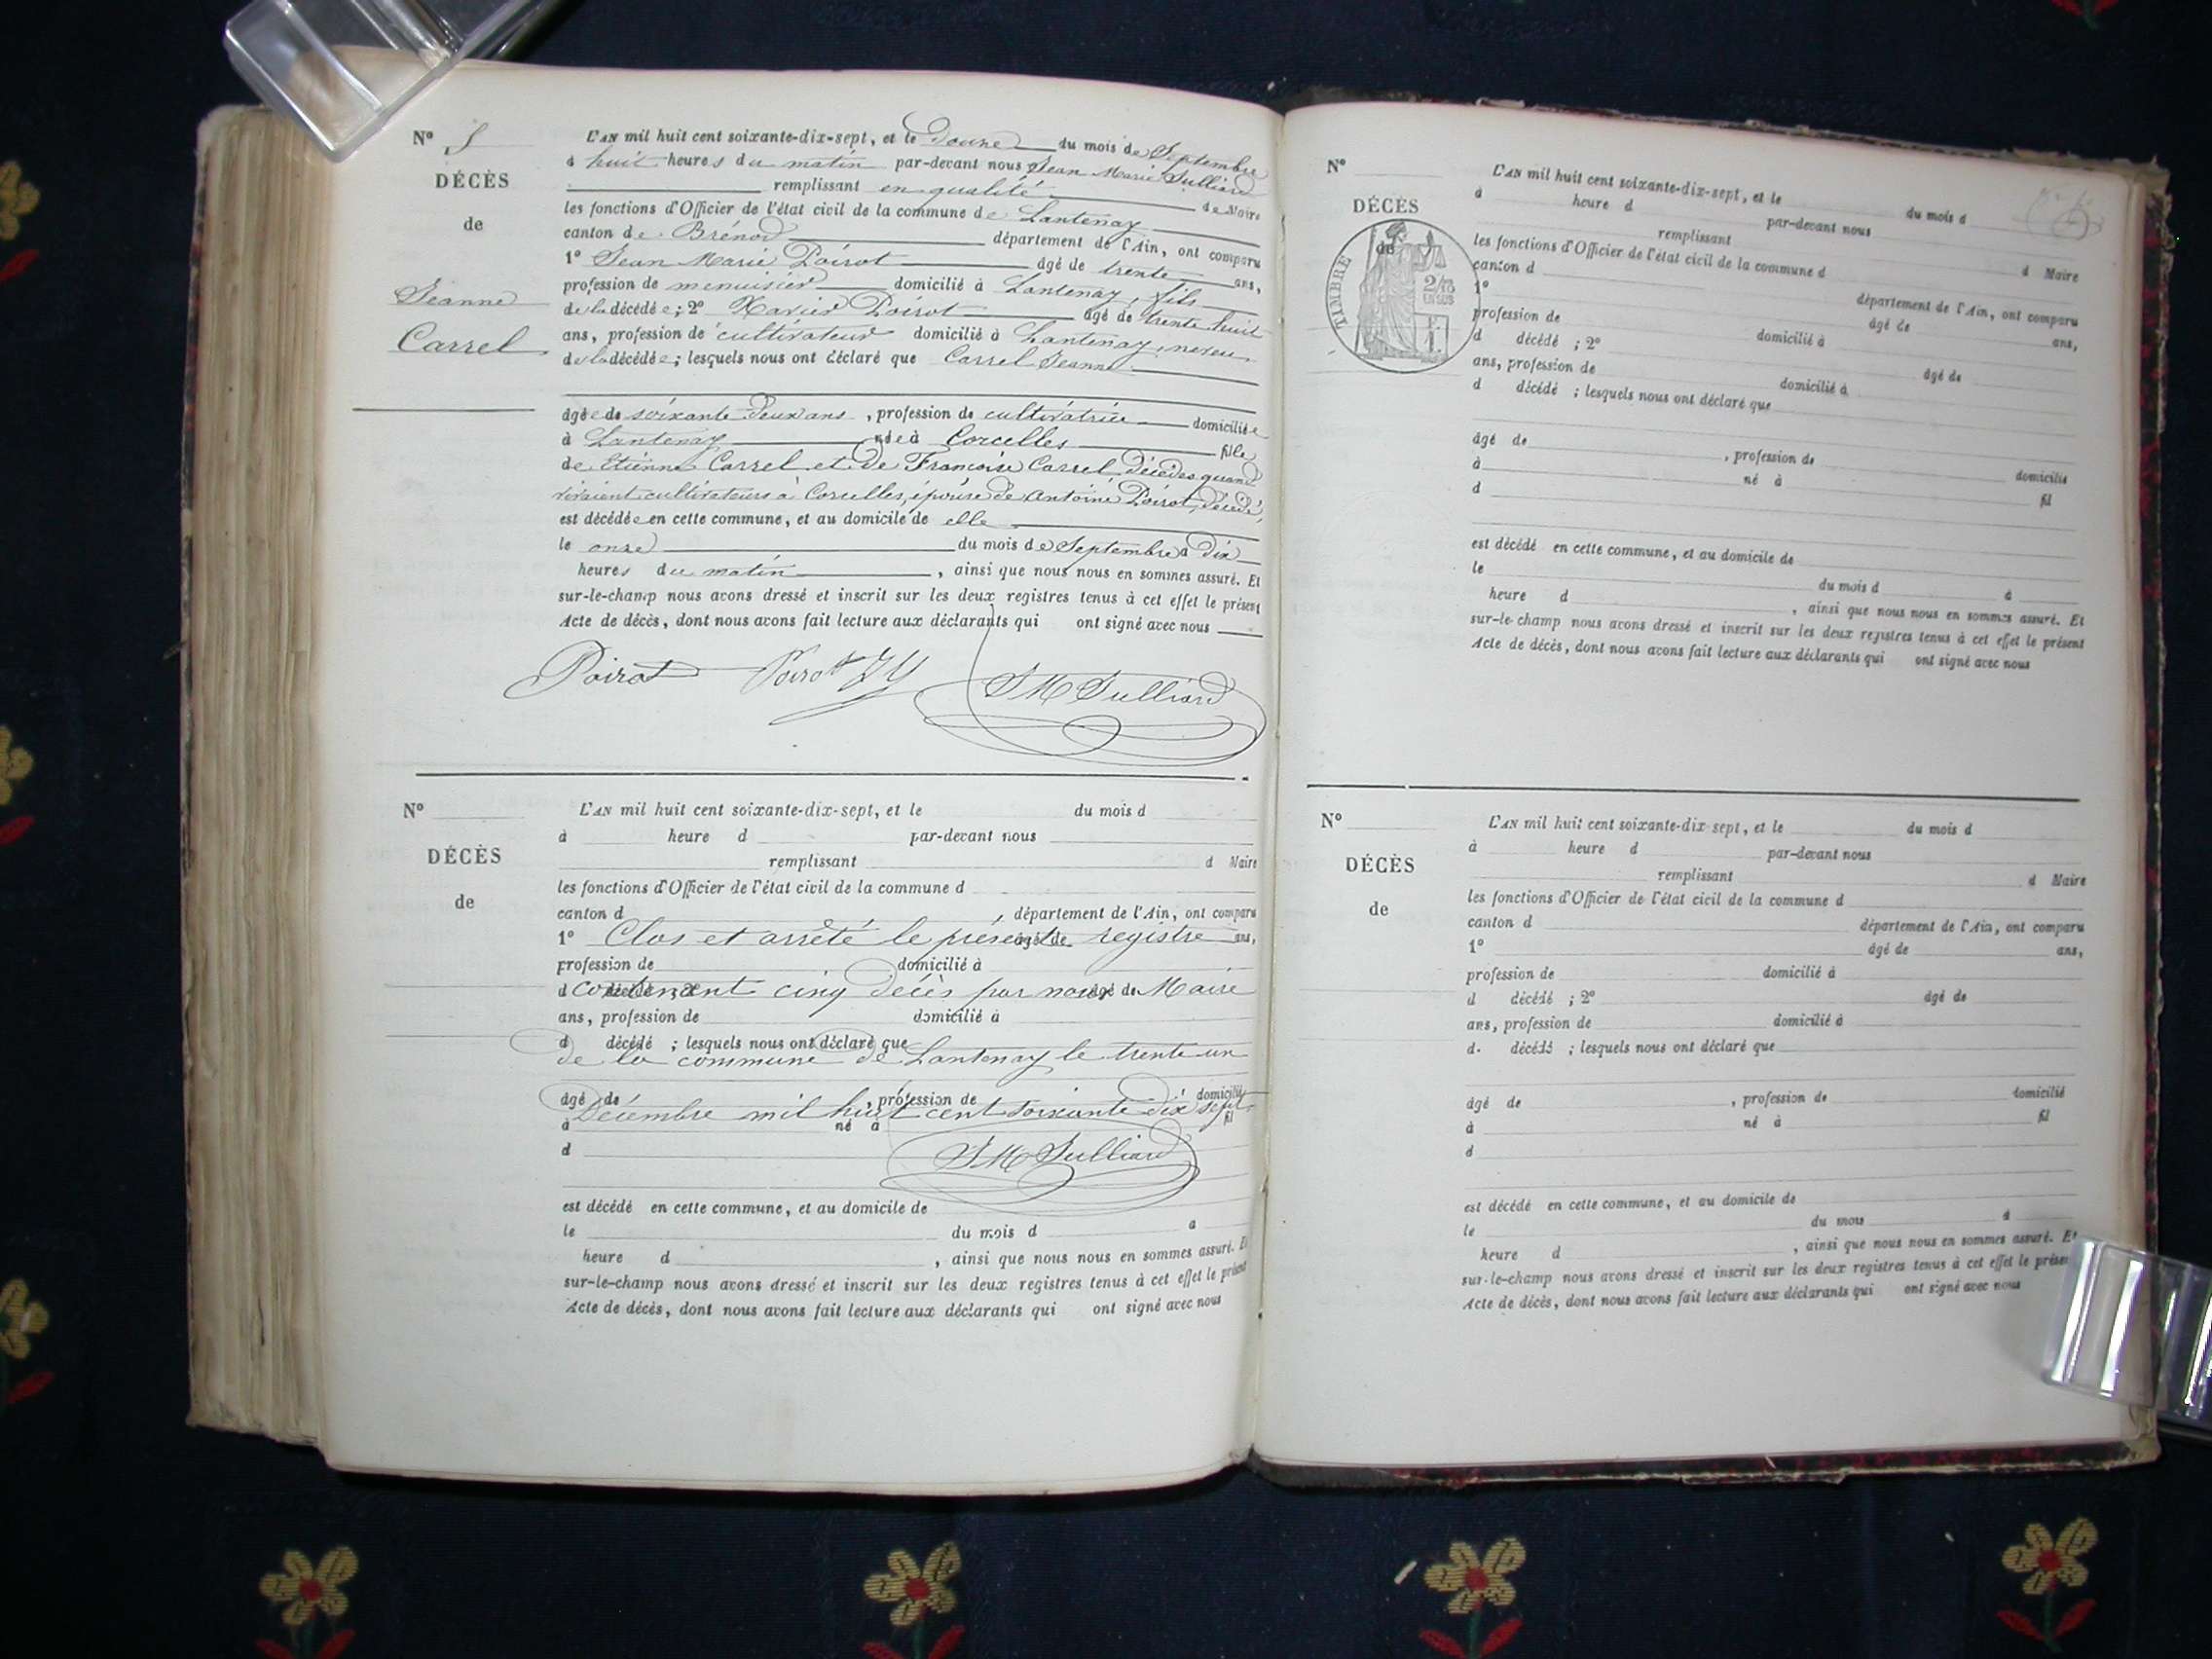 N° 5
DÉCÈS
de
Jeanne
Carrel
L'AN mil huit cent soixante-dix-sept, et le douze du mois de Septembre
à huit heures du matin par-devant nous Jean Marie Julliard
remplissant en qualité de Maire
les fonctions d'Officier de l'état civil de la commune de Lantenay
canton de Brénod département de l'Ain, ont comparu
1° Jean Marie Poirot âgé de trente ans,
profession de menuisier domicilié à Lantenay, fils
de la décédée; 2° Xavier Poirot âgé de trente huit
ans, profession de cultivateur domicilié à Lantenay, neveu
de la décédée; lesquels nous ont déclaré que Carrel Jeanne
âgée de soixante deux ans, profession de cultivatrice domiciliée
à Lantenay née à Corcelles fille
de Etienne Carrel et de Françoise Carrel, décédés quand
vivaient cultivateurs à Corcelles, épouse de Antoine Poirot, décédé,
est décédée en cette commune, et au domicile de elle
le onze du mois de Septembre à dix
heures du matin, ainsi que nous nous en sommes assuré. Et
sur-le-champ nous avons dressé et inscrit sur les deux registres tenus à cet effet le présent
Acte de décès, dont nous avons fait lecture aux déclarants qui ont signé avec nous
Poirot Poirot JM Julliard
N°
DÉCÈS
de
L'AN mil huit cent soixante-dix-sept, et le du mois d
à heure d par-devant nous
remplissant d Maire
les fonctions d'Officier de l'état civil de la commune d
canton d département de l'Ain, ont comparu
1° âgé de ans,
Clos et arrêté le présent registre
profession de domicilié à
d décédé ; 2° âgé de
contenant cinq décès par nous Maire
ans, profession de domicilié à
d décédé ; lesquels nous ont déclaré que
de la commune de Lantenay le trente un
âgé de , profession de domicilié
Décembre mil huit cent soixante dix sept
à né à fil
d
JM Julliard
est décédé en cette commune, et au domicile de
le du mois d à
heure d , ainsi que nous nous en sommes assuré. Et
sur-le-champ nous avons dressé et inscrit sur les deux registres tenus à cet effet le présent
Acte de décès, dont nous avons fait lecture aux déclarants qui ont signé avec nous
N°
DÉCÈS
de
TIMBRE
2/10
EN SUS
L'AN mil huit cent soixante-dix-sept, et le du mois d
à heure d par-devant nous
remplissant d Maire
les fonctions d'Officier de l'état civil de la commune d
canton d département de l'Ain, ont comparu
1° âgé de ans,
profession de domicilié à
d décédé ; 2° âgé de
ans, profession de domicilié à
d décédé ; lesquels nous ont déclaré que
âgé de , profession de domicilié
à né à fil
d
est décédé en cette commune, et au domicile de
le du mois d à
heure d , ainsi que nous nous en sommes assuré. Et
sur-le-champ nous avons dressé et inscrit sur les deux registres tenus à cet effet le présent
Acte de décès, dont nous avons fait lecture aux déclarants qui ont signé avec nous
N°
DÉCÈS
de
L'AN mil huit cent soixante-dix-sept, et le du mois d
à heure d par-devant nous
remplissant d Maire
les fonctions d'Officier de l'état civil de la commune d
canton d département de l'Ain, ont comparu
1° âgé de ans,
profession de domicilié à
d décédé ; 2° âgé de
ans, profession de domicilié à
d. décédé ; lesquels nous ont déclaré que
âgé de , profession de domicilié
à né à fil
d
est décédé en cette commune, et au domicile de
le du mois à
heure d , ainsi que nous nous en sommes assuré. Et
sur-le-champ nous avons dressé et inscrit sur les deux registres tenus à cet effet le présen
Acte de décès, dont nous avons fait lecture aux déclarants qui ont signé avec nous